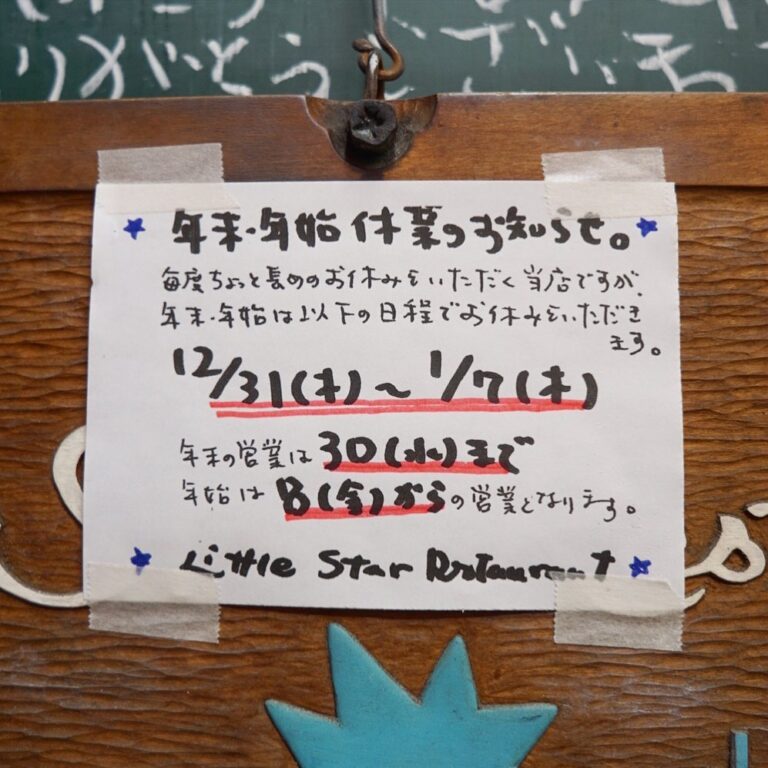 りがとうございます
年末・年始 休業のお知らせ。
毎度ちょっと長めのお休みをいただく当店ですが、
年末・年始は以下の日程でお休みをいただき
ます。
12/31(木)～1/7(木)
年末の営業は 30(水)まで
年始は 8(金)からの営業となります。
Little Star Restaurant